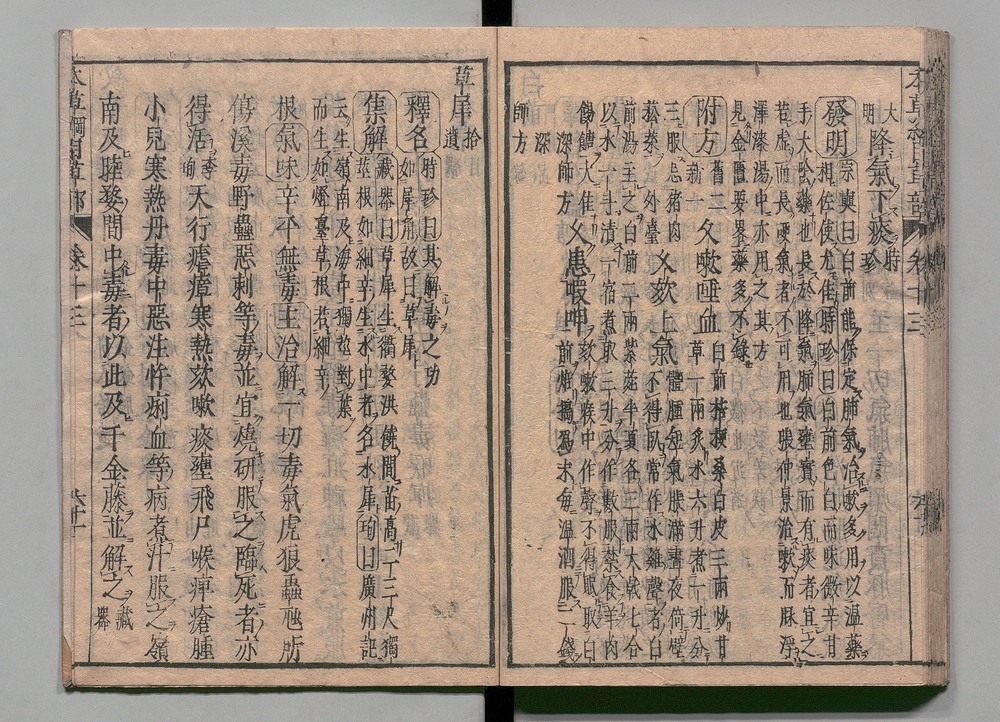 本草綱目草部 卷十三
大明 降氣下痰 時珍
發明 宗奭曰白前能保定肺氣治嗽多用以溫藥
相佐使尤佳時珍曰白前色白而味微辛甘
手太陰藥也長於降氣肺氣壅實而有痰者宜之
若虛而長哽氣者不可用也張仲景治嗽而脉浮
澤漆湯中亦用之其方
見金匱要畧藥多不錄
附方 舊二 新一 久嗽唾血 白前桔梗桑白皮三兩炒甘
草一兩炙水六升煮一升分
三服忌猪肉
菘菜外臺 久欬上氣 體腫短氣脹滿晝夜倚壁
不得臥常作水雞聲者白
前湯主之白前二兩紫菀半夏各三兩大戟七合
以水一斗漬一宿煮取三升分作數服禁食羊肉
餳餹大佳
深師方 久患暇呷 欬嗽喉中作聲不得眠取白
前焙搗爲末每温酒服二錢
深
師方
草犀 拾遺
釋名 時珍曰其解毒之功
如犀角故曰草犀
集解 藏器曰草犀生衢婺洪饒間苗高二三尺獨
莖根如細辛生水中者名水犀珣曰廣州記
云生嶺南及海中獨莖對葉
而生如燈臺草根若細辛
根氣味辛平無毒主治解一切毒氣虎狼蟲虺所
傷溪毒野蠱惡刺等毒並宜燒研服之臨死者亦
得活 李珣 天行瘧瘴寒熱欬嗽痰壅飛尸喉痺瘡腫
小兒寒熱丹毒中惡注忤痢血等病煮汁服之嶺
南及睦婺間中毒者以此及千金藤並解之 藏器
本草綱目草部 卷十三